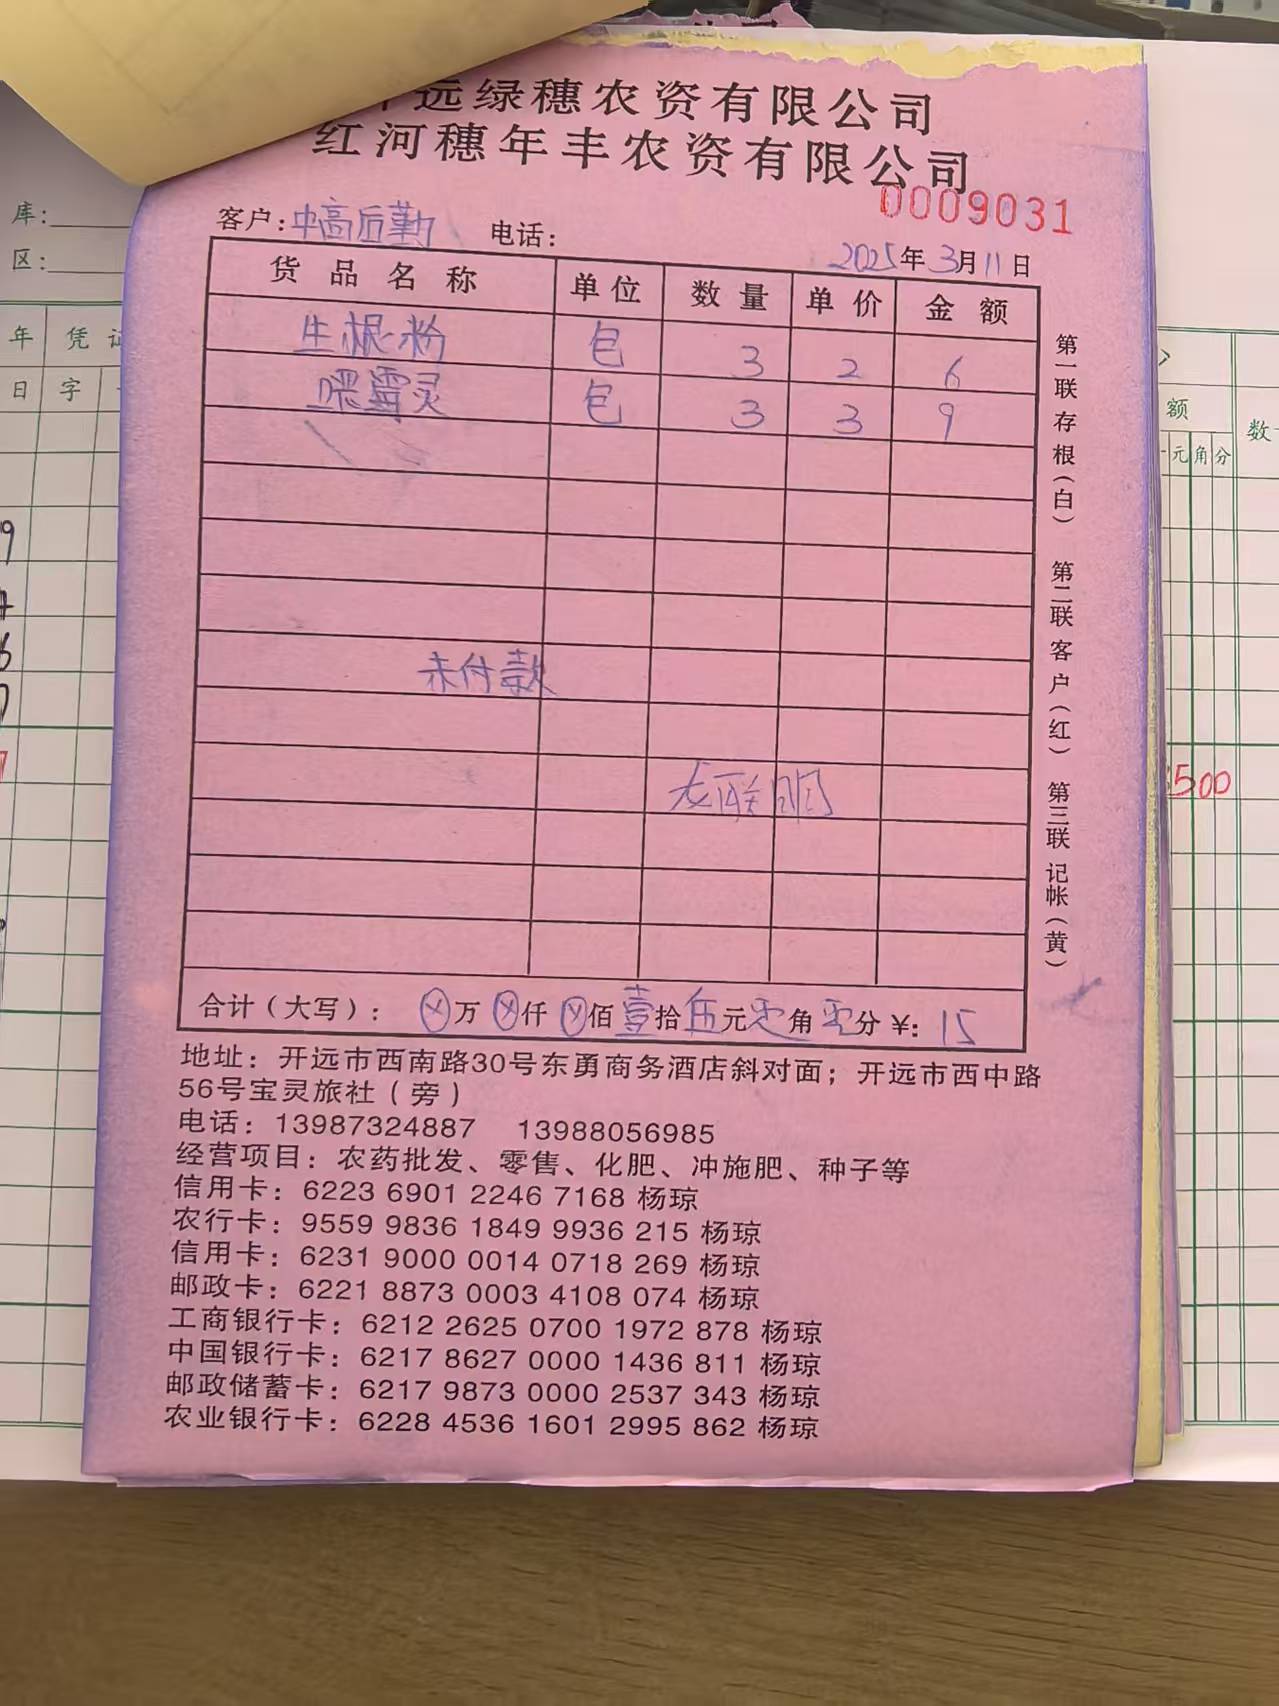 远绿穗农资有限公司
红河穗年丰农资有限公司
0009031
客户:中高后勤 电话:
2025年3月11日
货品名称 单位 数量 单价 金额
生根粉 包 3 2 6
噁霉灵 包 3 3 9
未付款
龙联明
合计(大写): ⊗万 ⊗仟 ⊗佰 壹拾 伍元 零角 零分 ¥: 15
第一联存根(白) 第二联客户(红) 第三联记帐(黄)
地址:开远市西南路30号东勇商务酒店斜对面;开远市西中路
56号宝灵旅社(旁)
电话:13987324887 13988056985
经营项目:农药批发、零售、化肥、冲施肥、种子等
信用卡:6223 6901 2246 7168 杨琼
农行卡:9559 9836 1849 9936 215 杨琼
信用卡:6231 9000 0014 0718 269 杨琼
邮政卡:6221 8873 0003 4108 074 杨琼
工商银行卡:6212 2625 0700 1972 878 杨琼
中国银行卡:6217 8627 0000 1436 811 杨琼
邮政储蓄卡:6217 9873 0000 2537 343 杨琼
农业银行卡:6228 4536 1601 2995 862 杨琼
库:
区:
年 凭证
日 字
额
元角分
数
500